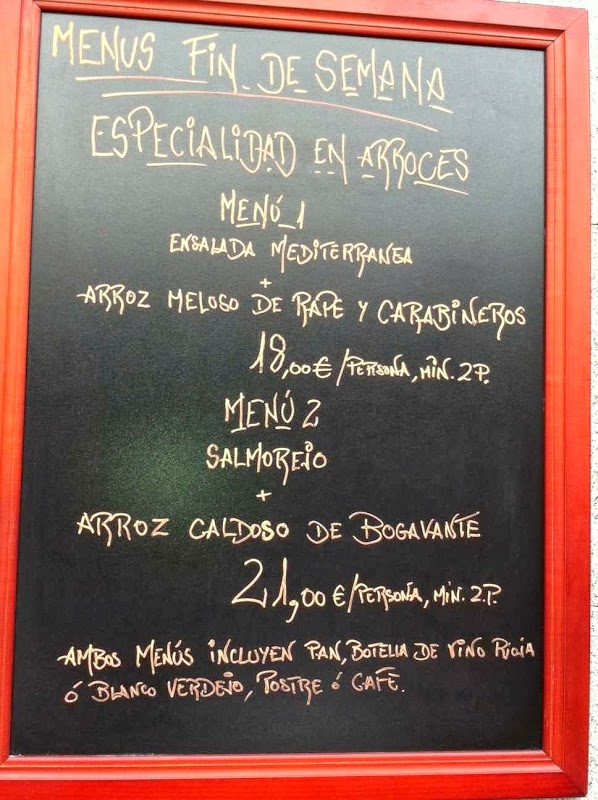 MENUS FIN DE SEMANA
ESPECIALIDAD EN ARROCES
MENÚ 1
ENSALADA MEDITERRANEA
+
ARROZ MELOSO DE RAPE Y CARABINEROS
18,00€/PERSONA, MÍN. 2P.
MENÚ 2
SALMOREJO
+
ARROZ CALDOSO DE BOGAVANTE
21,00€/PERSONA, MIN. 2.P.
AMBOS MENÚS INCLUYEN PAN, BOTELLA DE VINO RIOJA
Ó BLANCO VERDEJO, POSTRE Ó CAFÉ.